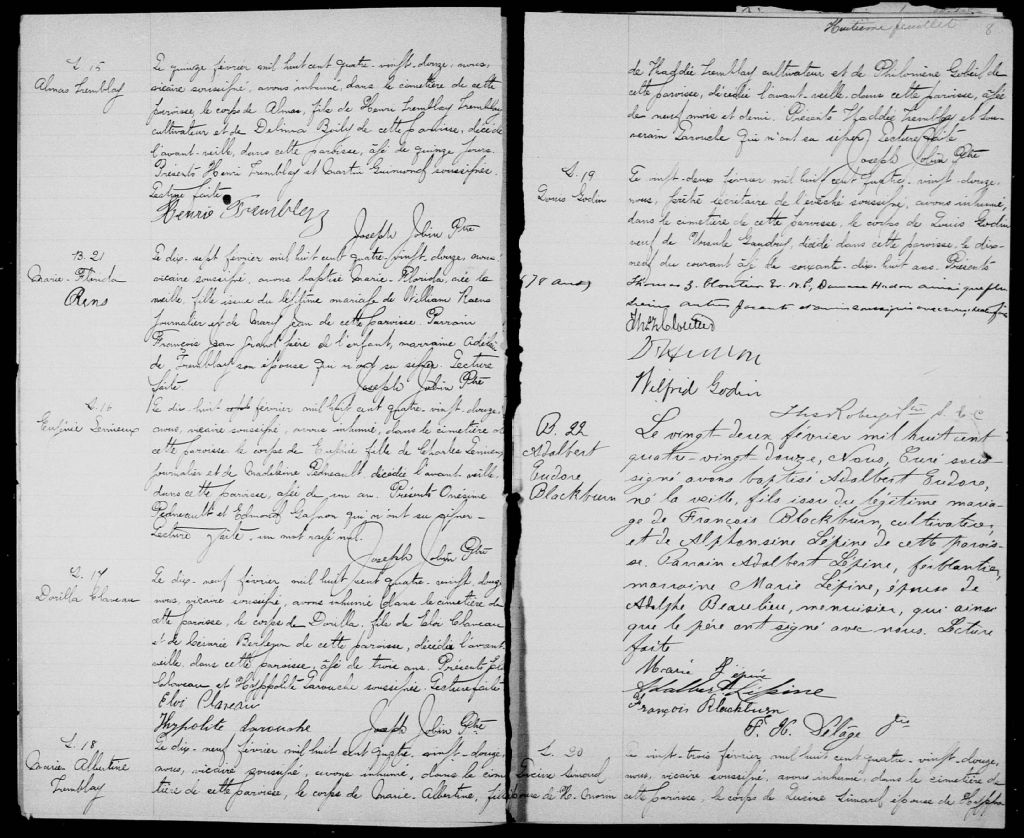 S. 15
Almas Tremblay
Le quinze février mil huit cent quatre-vingt-douze, nous,
vicaire soussigné, avons inhumé, dans le cimetière de cette
paroisse, le corps de Almas, fils de Henri Tremblay
cultivateur et de Delima Boily de cette paroisse, décédé
l'avant-veille, dans cette paroisse, âgé de quinze jours.
Présents Henri Tremblay et Martin Guimond soussignés.
Lecture faite
Henri Tremblay
Joseph Jobin Ptre
B. 21
Marie-Florida
Rins
Le dix-sept février mil huit cent quatre-vingt-douze, nous
vicaire soussigné, avons baptisé Marie-Florida, née la
veille, fille issue du légitime mariage de William
journalier et de Mary Jean de cette paroisse. Parrain
François Jean grand'père de l'enfant, marraine Adèle
de Tremblay son épouse qui n'ont su signer. Lecture
faite
Joseph Jobin Ptre
S. 16
Eugénie Lemieux
Le dix-huit février mil huit cent quatre-vingt-douze
nous, vicaire soussigné, avons inhumé, dans le cimetière de
cette paroisse le corps de Eugénie fille de Charles Lemieux
journalier et de Madeleine Pedneault décédée l'avant-veille,
dans cette paroisse, âgée de un an. Présents Onésime
Pedneault et Edmond Gagnon qui n'ont su signer-
Lecture faite. un mot rayé nul.
Joseph Jobin Ptre
S. 17
Dorilla Claveau
Le dix-neuf février mil huit cent quatre-vingt-douze
nous, vicaire soussigné, avons inhumé dans le cimetière de
cette paroisse, le corps de Dorilla, fille de Eloi Claveau
et de de cette paroisse, décédée l'avant-
veille, dans cette paroisse, âgée de trois ans. Présents Eloi
Claveau et Hyppolite Larouche soussignés. Lecture faite
Eloi Claveau
Hyppolite Larouche
Joseph Jobin Ptre
S. 18
Marie-Albertine
Tremblay
Le dix-neuf février mil huit cent quatre-vingt-douze
nous, vicaire soussigné, avons inhumé, dans le cime
tière de cette paroisse, le corps de Marie-Albertine, fille
Huitième feuillet 8
de Thaddée Tremblay cultivateur et de Philomène Gobeil de
cette paroisse, décédée l'avant-veille dans cette paroisse, âgée
de neuf mois et demi. Présents Thaddée Tremblay et Sou-
verain Larouche qui n'ont su signer. Lecture faite
Joseph Jobin Ptre
S. 19
Louis Godin
(78 ans)
Le vingt-deux février mil huit cent quatre-vingt-douze,
nous, prêtre secrétaire de l'évêché soussigné, avons inhumé,
dans le cimetière de cette paroisse, le corps de Louis Godin
veuf de Ursule Gaudry, décédé dans cette paroisse, le dix-
neuf du courant âgé de soixante-dix-huit ans. Présents
Thomas Z. Cloutier Ecr. N.P., Hudon ainsi que plu
sieurs autres
Ths Z Cloutier
D. Hudon
Wilfrid Godin
Ths Roberge Ptre S. E. C.
B. 22
Adalbert
Eudore
Blackburn
Le vingt-deux février mil huit cent
quatre-vingt douze, Nous, Curé sous-
signé avons baptisé Adalbert Eudore,
né la veille, fils issu du légitime maria-
ge de François Blackburn, cultivateur,
et de Alphonsine Lépine de cette parois-
se. Parrain Adalbert Lépine, ferblantier,
marraine Marie Lépine, épouse de
Adolphe Beaulieu, menuisier, qui ainsi
que le père ont signé avec nous. Lecture
faite
Marie Lépine
Adalbert Lépine
François Blackburn
F. X. Delâge Ptre
S. 20
Lucine Simard
épouse de H.
Le vingt-trois février, mil huit cent quatre-vingt-douze,
nous, vicaire soussigné, avons inhumé, dans le cimetière de
cette paroisse, le corps de Lucine Simard épouse de Hyppo